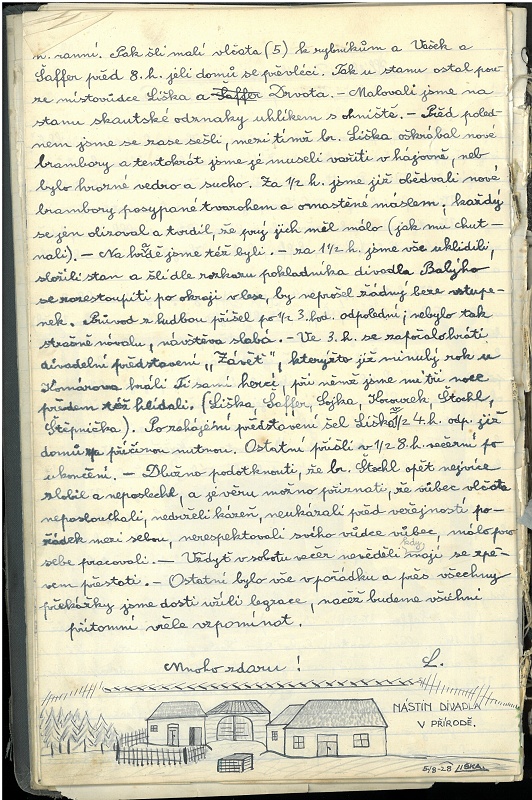 n. ranní. Pak šli malí vlčata (5) k rybníkům a Vašek a
Šaffer před 8. h. jeli domů se převléci. Tak u stanu ostal pou-
ze místovůdce Liška a Šaffer Drvota. – Malovali jsme na
stanu skautské odznaky uhlíkem s ohniště. – Před poled-
nem jsme se zase sešli, mezi tímž br. Liška oškrábal nové
brambory a tentokrát jsme je museli vařiti v hájovně, neb
bylo hrozné vedro a sucho. Za 1/2 h. jsme již obědvali nové
brambory posypané tvarohem a omastěné máslem; každý
se jen olizoval a tvrdil, že prý jich měl málo (jak mu chut-
nali). – Na hůdě jsme též byli. – za 1 1/2 h. jsme vše uklidili,
složili stan a šli dle rozkazu pokladníka divadla Balýho
se rozestoupiti po okraji v lese, by neprošel žádný beze vstupe-
nek. Průvod z hudbou přišel po 1/2 3. hod. odpolední; nebylo tak
strašně návalu, návštěva slabá. – Ve 3. h. se započalo hráti
divadelní představení „Závěť", kteréžto již minulý rok u
Komárova hráli. Ti samí herci, při němž jsme my tři noce
předem též hlídali. (Liška, Šaffer, Lojka, Korourek, Štochl,
Štěpnička). Po zahájení představení šel Liška v 1/2 4. h. odp. již
domů příčinou nutnou. Ostatní přišli v 1/2 8. h. večerní po
ukončení. – Dlužno podotknouti, že br. Štochl opět nejvíce
zlobil a neposlechl, a je věru možno přiznati, že vůbec vlčata
neposlouchali, nedrželi kázeň, neukázali před veřejností po-
řádek mezi sebou, nerespektovali svého vůdce vůbec, málo pro
sebe pracovali. – Vždyť v sobotu večer nevěděli kdy mají se zpě-
vem přestati. – Ostatní bylo vše v pořádku a přes všechny
překážky jsme dosti užili legrace, načež budeme všichni
přítomní vřele vzpomínat.
Mnoho zdaru! L.
NÁSTIN DIVADLA
V PŘÍRODĚ.
5/8-28 LIŠKA.